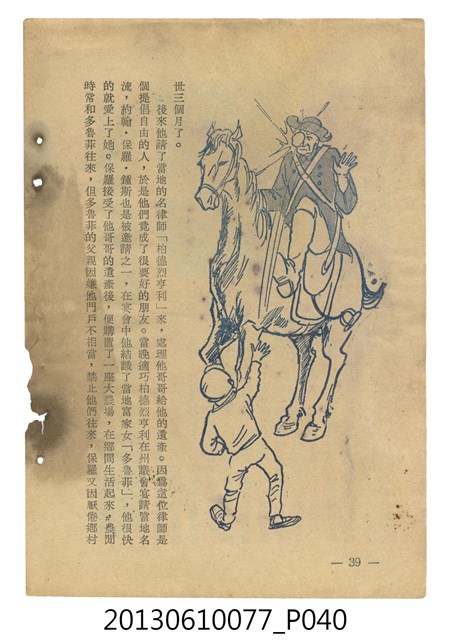 世三個月了。
後來他請了當地的名律師「柏德烈亨利」來，處理他哥哥給他的遺產。因爲這位律師是
個提倡自由的人，於是他們竟成了很要好的朋友。當晚適巧柏德烈亨利在州議會宴請當地名
流，約翰・保羅・鍾斯也是被邀請之一，在宴會中他結識了當地富家女「多魯菲」，他很快
的就愛上了她。保羅接受了他哥哥的遺產後，便購置了一座大農場，在鄉間生活起來，農閒
時常和多魯菲往來，但多魯菲的父親因嫌他門戶不相當，禁止他們往來，保羅又因厭倦鄉村
— 39 —
20130610077_P040